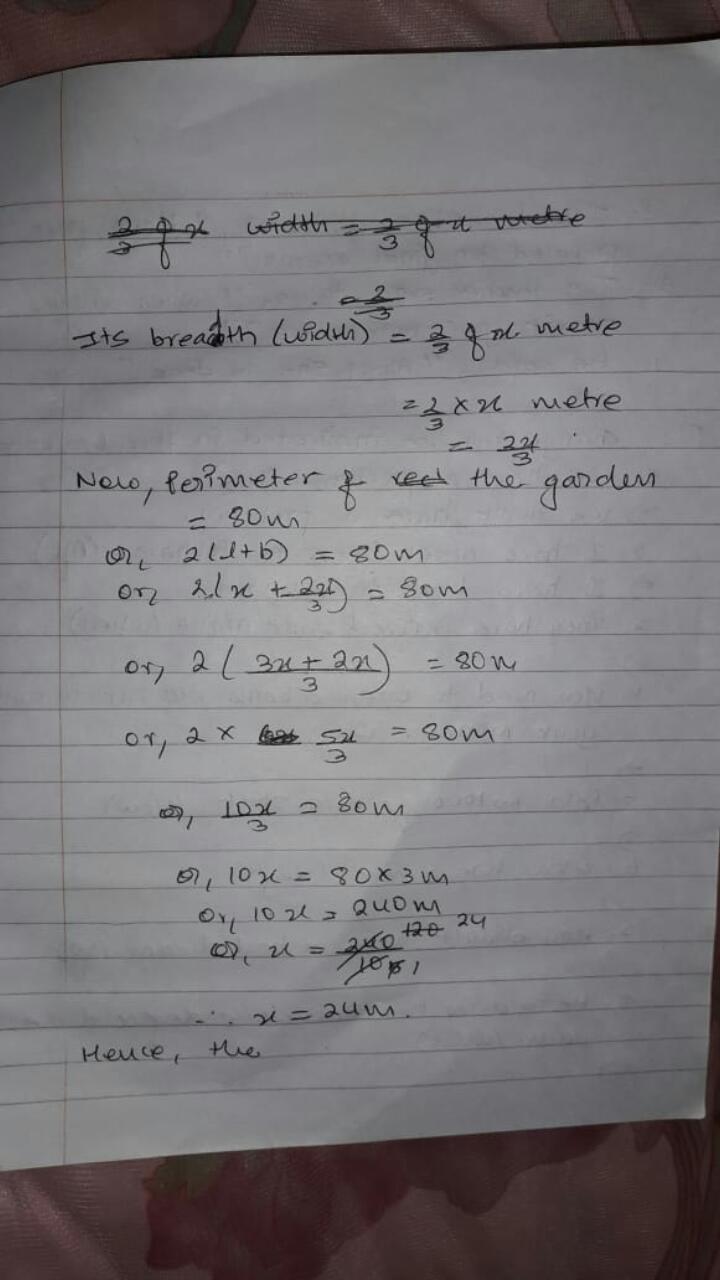 2/3 of x width = 2/3 of x metre
= 2/3
Its breadth (width) = 2/3 of x metre
= 2/3 × x metre
= 2x/3
Now, Perimeter of rect the garden
= 80m
or, 2(l+b) = 80m
or, 2(x + 2x/3) = 80m
or, 2(3x + 2x/3) = 80m
or, 2 × 5x/3 = 80m
or, 10x/3 = 80m
or, 10x = 80×3m
or, 10x = 240m
or, x = 240/10 120 24 5 1
∴ x = 24m.
Hence, the